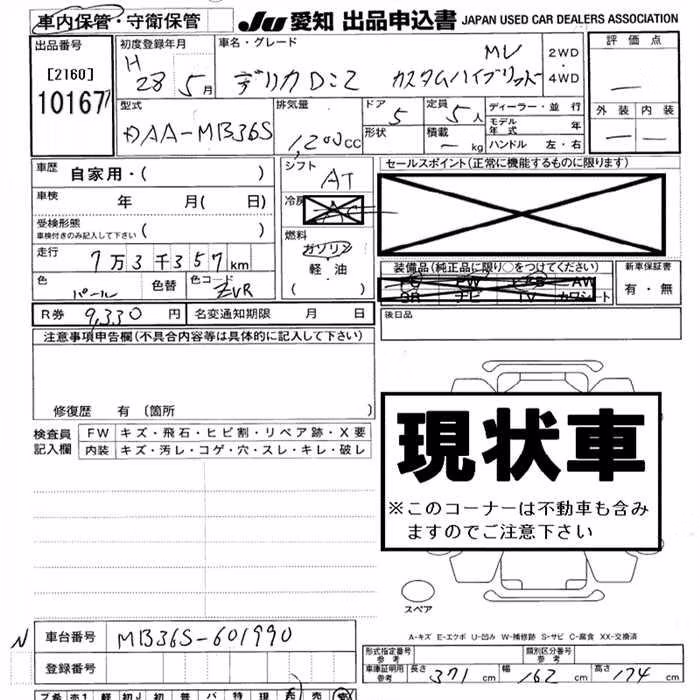 車内保管・守衛保管
JU 愛知 出品申込書 JAPAN USED CAR DEALERS ASSOCIATION
出品番号
[2160]
10167
初度登録年月
H 28 5月
車名・グレード
デリカD:2 カスタムハイブリッド MV
2WD
・
4WD
評価点
—
外装 内装
— —
型式
DAA-MB36S
排気量
1,200cc
ドア 5
形状
定員 5人
積載 — kg
ディーラー・並行
モデル年式 年
ハンドル 左・右
車歴
自家用・( )
車検 年 月( 日)
受検形態
車検付きのみ記入して下さい ( )
走行 7万3千357km
色 パール
色替
色コード ZVR
シフト
AT
冷房
AC
燃料
ガソリン
・
軽油
( )
セールスポイント(正常に機能するものに限ります)
装備品(純正品に限り○をつけてください)
PS PW AW
SR ナビ TV カワシート
新車保証書
有・無
R券 9,330円 名変通知期限 月 日
後日品
注意事項申告欄(不具合内容等は具体的に記入して下さい)
修復歴 有 〔箇所 〕
検査員記入欄
FW キズ・飛石・ヒビ割・リペア跡・X要
内装 キズ・汚レ・コゲ・穴・スレ・キレ・破レ
現状車
※このコーナーは不動車も含み
ますのでご注意下さい
スペア
A-キズ E-エクボ U-凹み W-補修跡 S-サビ C-腐食 XX-交換済
N 車台番号 MB36S-601990
登録番号
形式指定番号
参考
類別区分番号
参考
車庫証明用
参考
長さ 371cm 幅 162cm 高さ 174cm